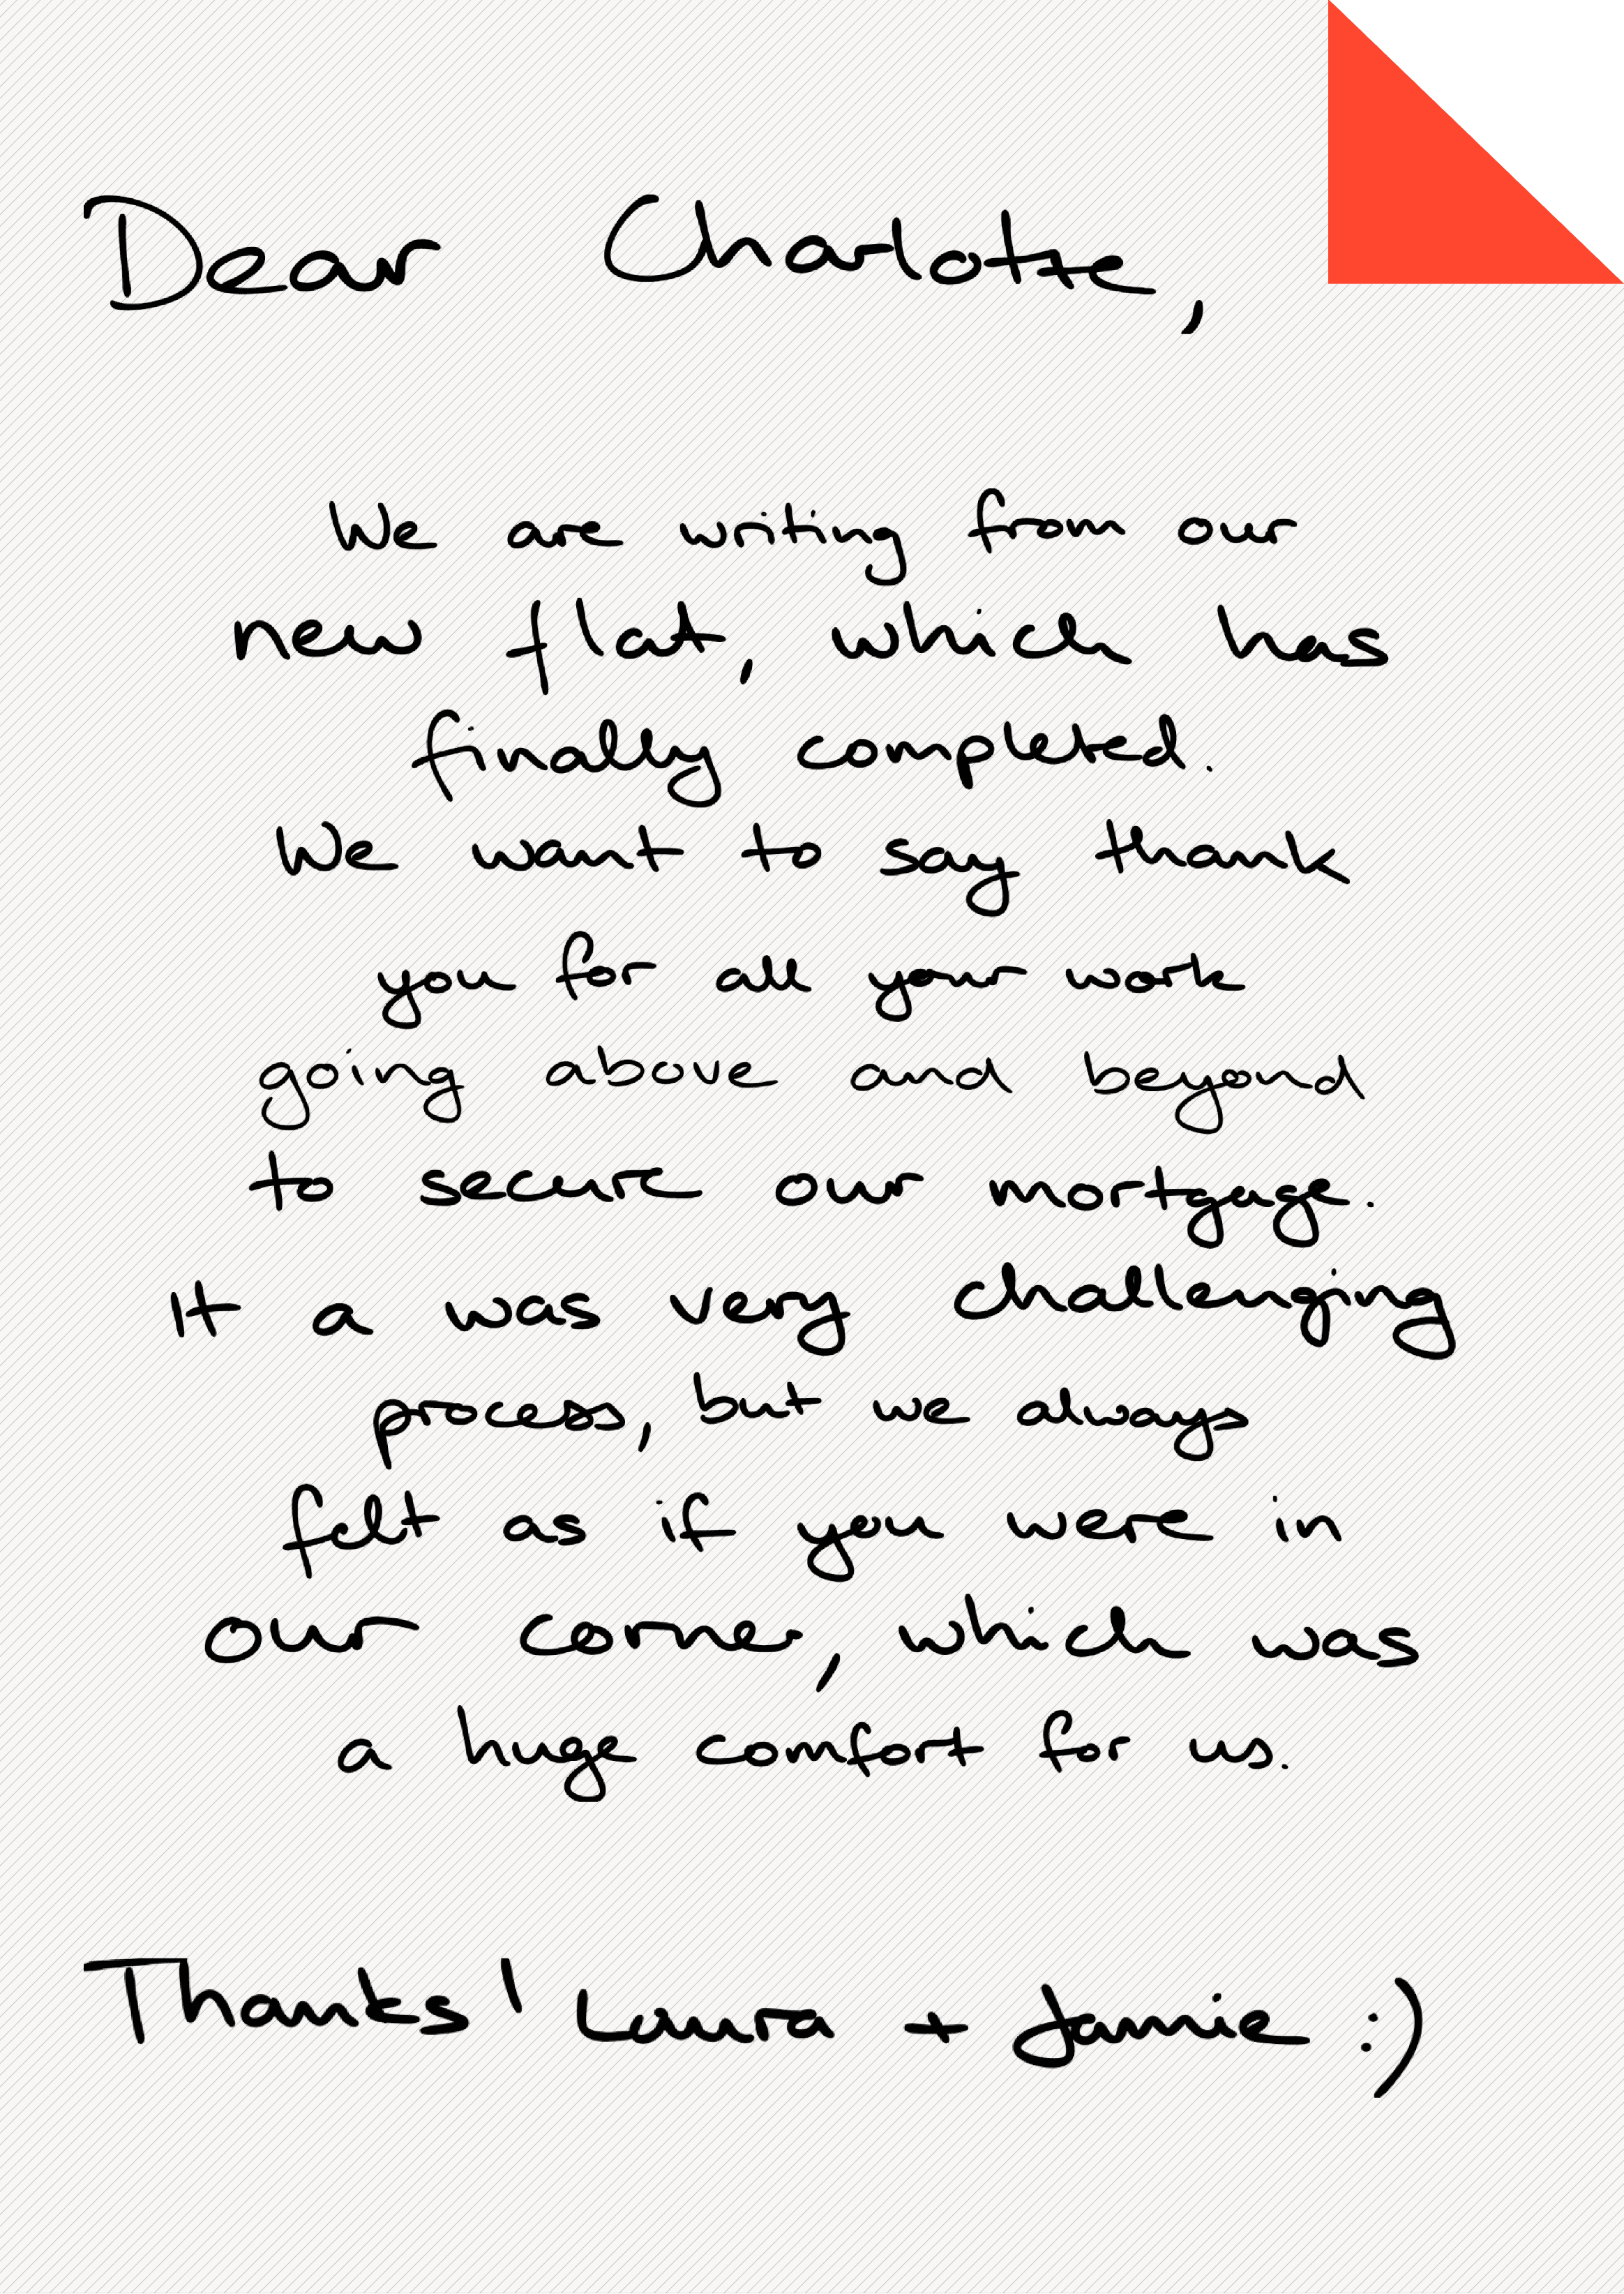 Dear Charlotte,
We are writing from our
new flat, which has
finally completed.
We want to say thank
you for all your work
going above and beyond
to secure our mortgage.
It a was very challenging
process, but we always
felt as if you were in
our corner, which was
a huge comfort for us.
Thanks! Laura + Jamie :)